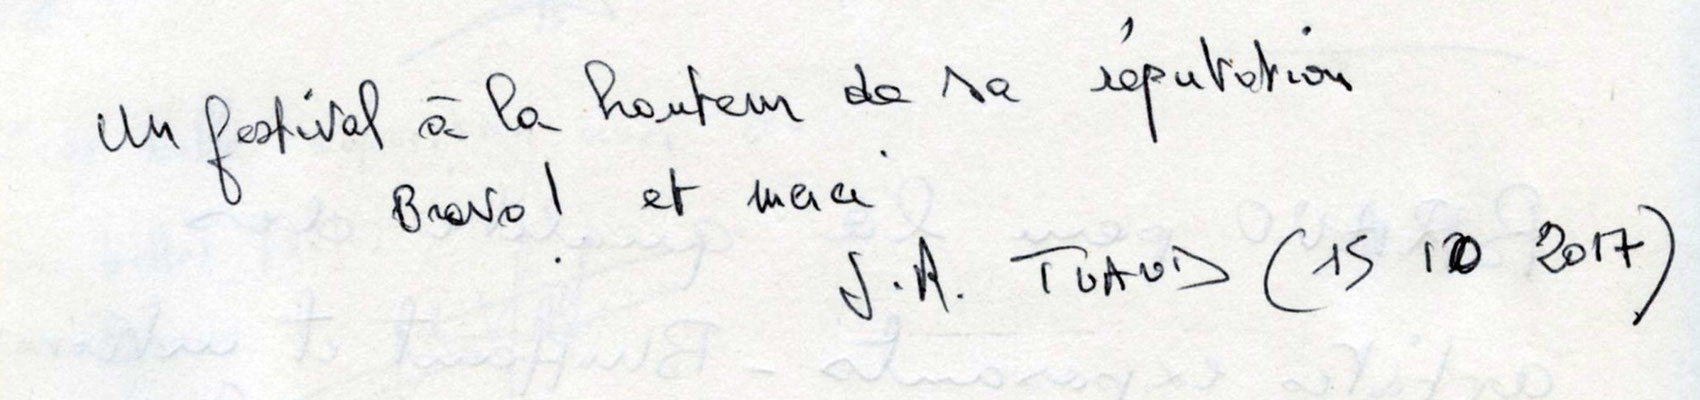 Un festival à la hauteur de sa réputation
Bravo! et merci
J.A. TUAUD (15 10 2017)